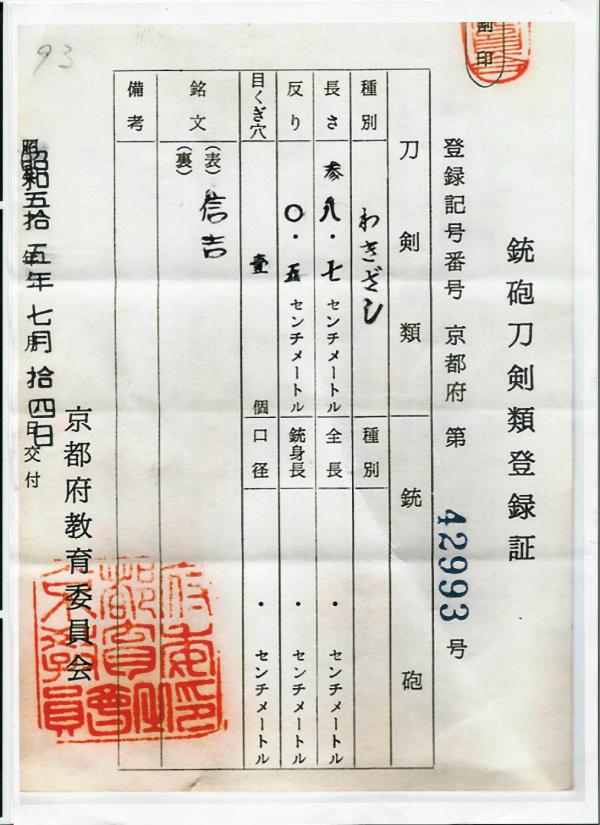 銃砲刀剣類登録証
登録記号番号 京都府 第 42993 号
刀剣類
種別 わきざし
長さ 参八・七センチメートル
反り 〇・五センチメートル
目くぎ穴 壹 個
銘文 (表) 信吉
(裏)
備考
銃砲
種別
全長 ・ センチメートル
銃身長 ・ センチメートル
口径 ・ センチメートル
昭和五拾五年七月拾四日交付
京都府教育委員会
割印
93